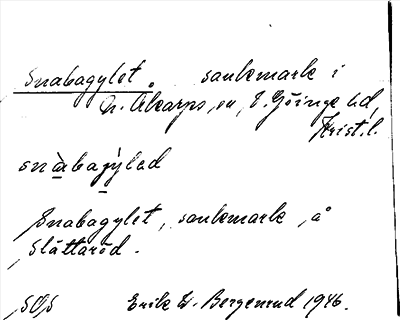 Snabagylet. sankmark i
N. Åkarps sn, V. Göinge hd,
Krist. l.
snàbagỳled
Snabagylet, sankmark, å
Slättaröd.
SOS Erik W. Bergenrud 1946.